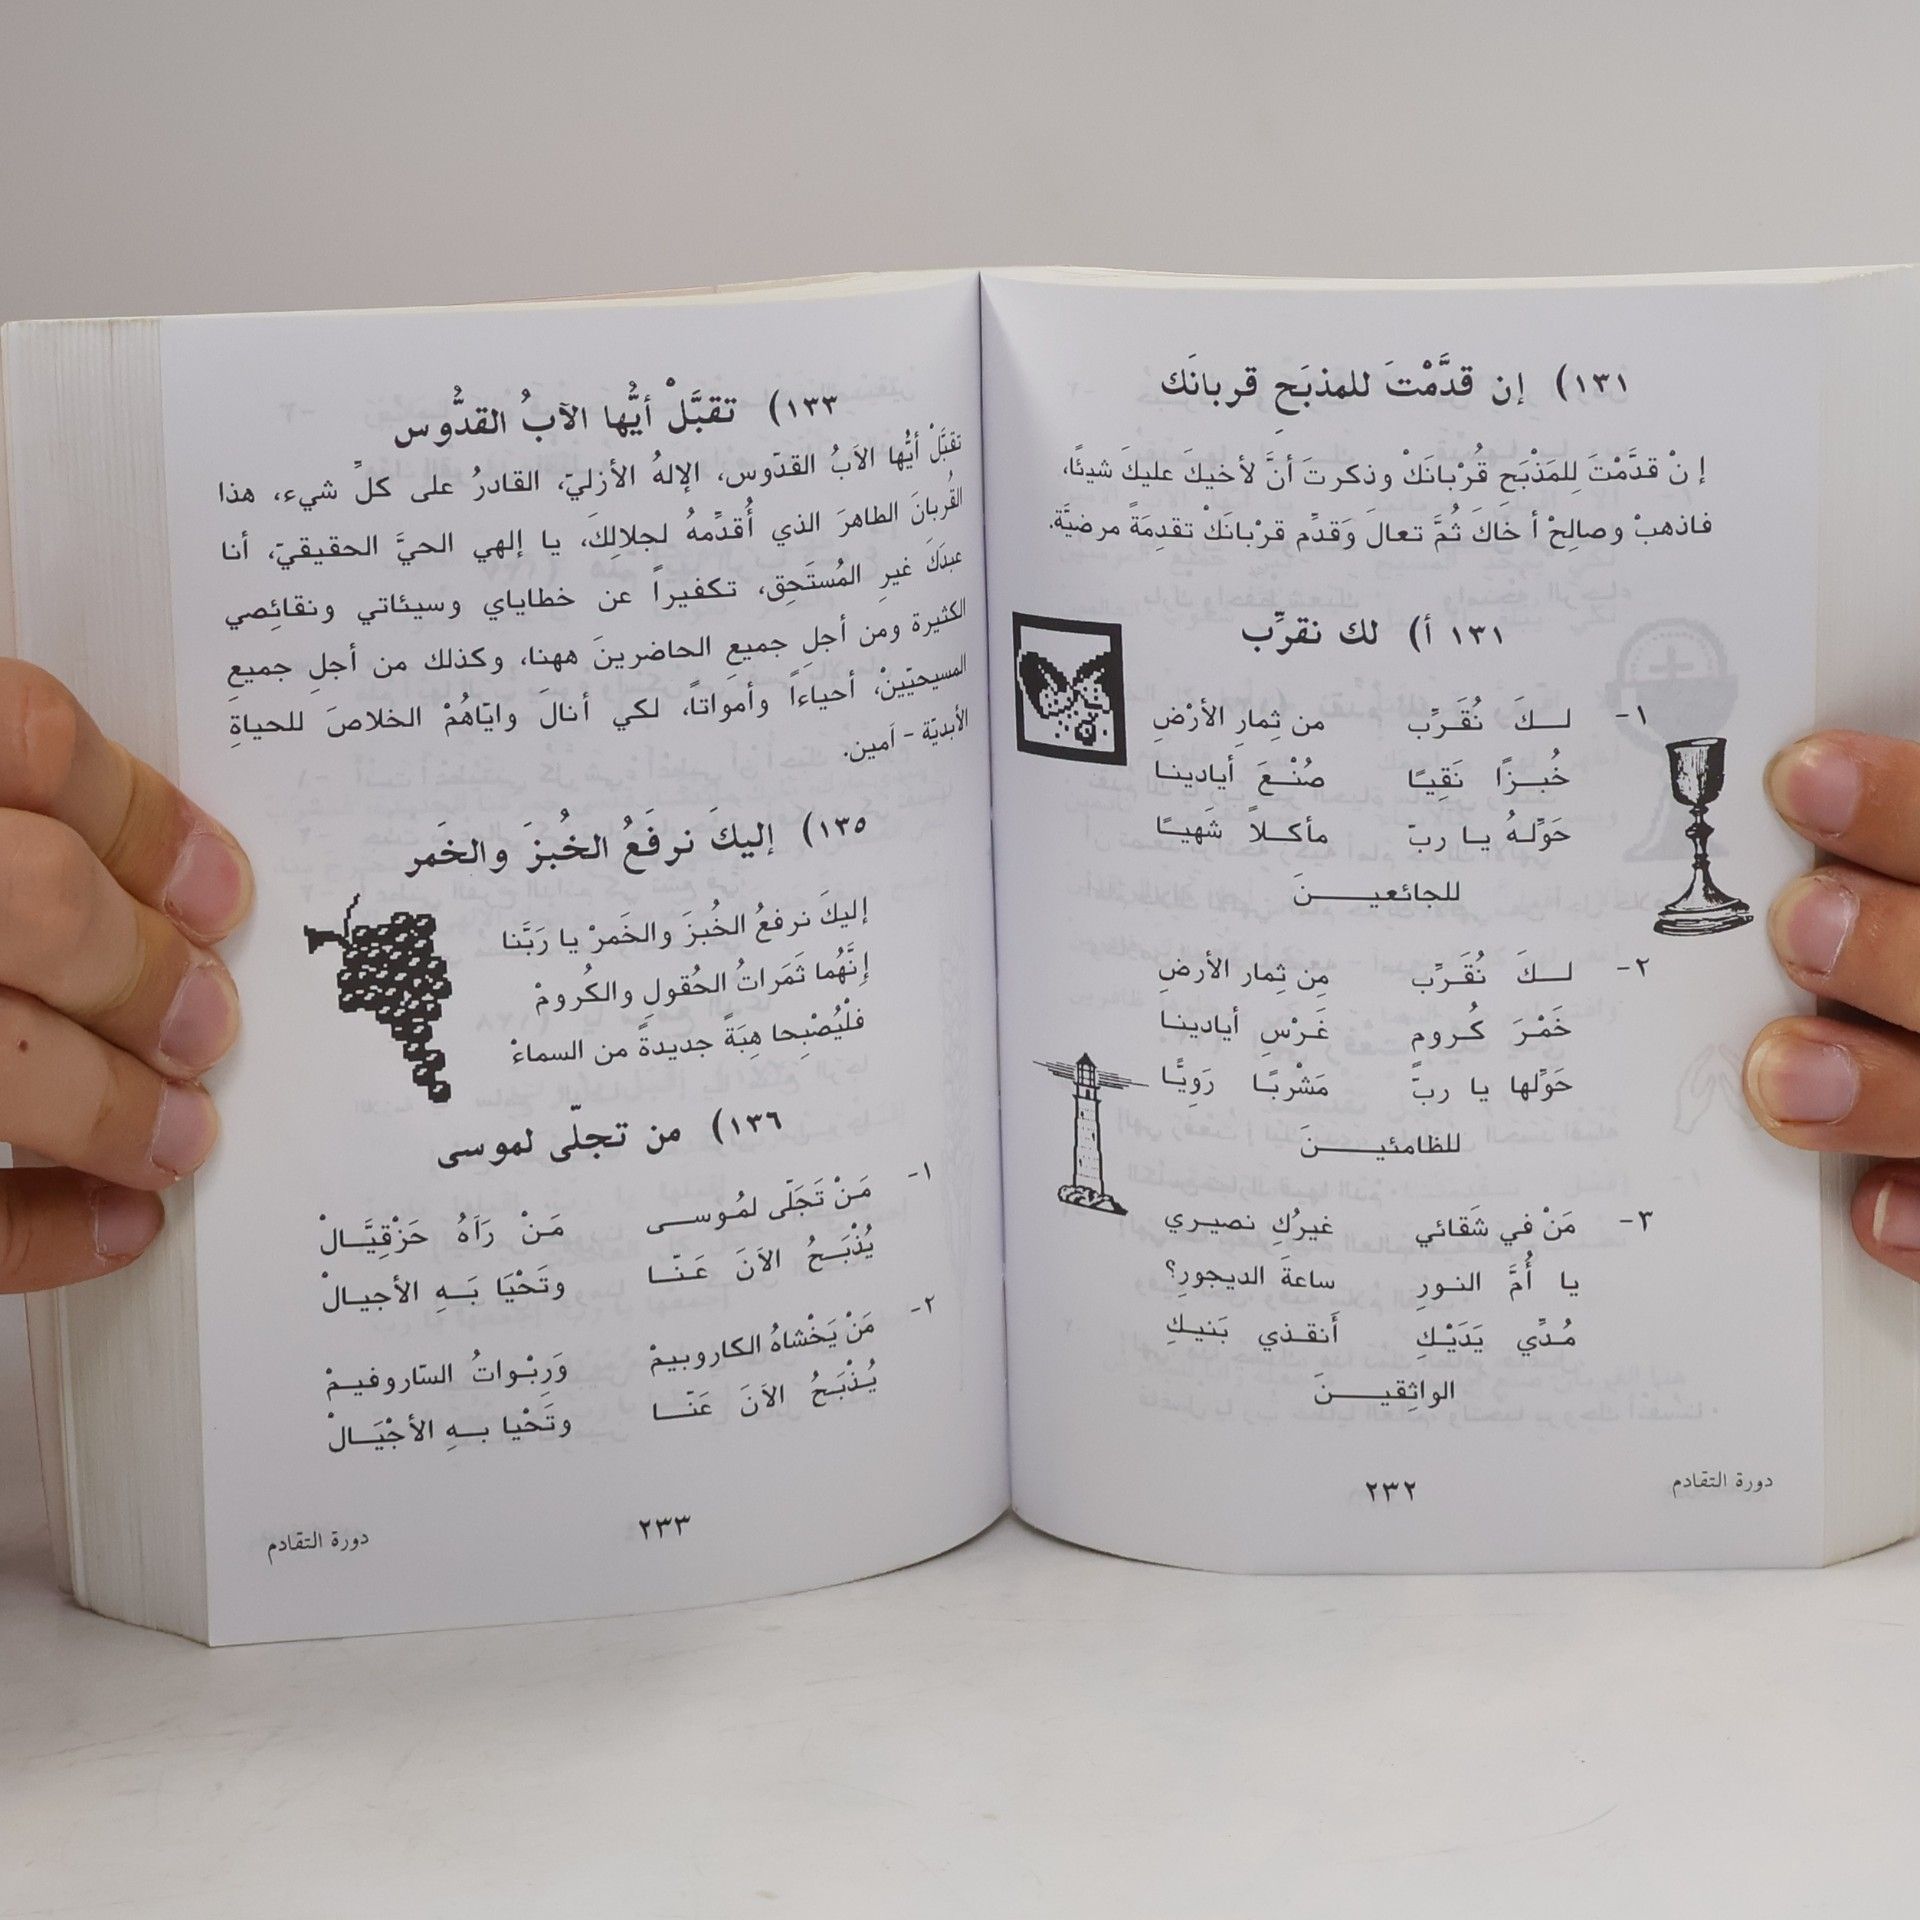 ١٣١) إن قدَّمْتَ للمذبَحِ قربانَك
إنْ قدَّمْتَ لِلمَذْبَحِ قُرْبانَكْ وذكرتَ أنَّ لأخيكَ عليكَ شيئًا،
فاذهبْ وصالِحْ أخاكَ ثُمَّ تعالَ وَقدِّم قرْبانَكْ تقدِمَةً مرضيَّة.
١٣١ أ) لك نقرِّب
١- لـكَ نُقَرِّب من ثِمارِ الأرْضِ
خُبـزًا نَقِيًا صُنْعَ أيادينا
حَوِّلهُ يـا ربّ مأكـلاً شَهيًا
للجائعيـــنَ
٢- لـكَ نُقَرِّب مِن ثِمار الأرضِ
خَمْرَ كُروم غَرْسِ أيادينا
حَوِّلها يا ربّ مَشْربًا رَويًّا
للظامئيـــنَ
٣- مَنْ في شَقائي غيرُكِ نصيري
يا أُمَّ النـورِ ساعةَ الديجورِ؟
مُـدِّي يَدَيْـكِ أَنقـذي بَنيـكِ
الواثِقيـــنَ
٢٣٢
دورة التقادم
١٣٣) تقبَّلْ أيُّها الآبُ القدُّوس
تقبَّلْ أيُّها الآبُ القدّوس، الإلهُ الأزليّ، القادرُ على كلِّ شيء، هذا
القُربانَ الطاهرَ الذي أُقدِّمهُ لجلالِكَ، يا إلهي الحيَّ الحقيقيّ، أنا
عبدَكَ غيرِ المُستَحِق، تكفيراً عن خطاياي وسيئاتي ونقائِصي
الكثيرة ومن أجلِ جميعِ الحاضرينَ ههنا، وكذلك من أجلِ جميعِ
المسيحيّينْ، أحياءاً وأمواتاً، لكي أنالَ واياهُمْ الخلاصَ للحياةِ
الأبديّة - آمين.
١٣٥) إليكَ نرفَعُ الخُبزَ والخَمر
إليكَ نرفعُ الخُبزَ والخَمرْ يا رَبَّنا
إنَّهُما ثَمَراتُ الحُقولِ والكُرومْ
فلْيُصْبِحا هِبَةً جديدةً من السماءْ
١٣٦) من تجلّى لموسى
١- مَـنْ تَجَلّى لمُوســى مَـنْ رَآهُ حَزْقِيَّــالْ
يُذْبَـحُ الآنَ عَـنّـا وتَحْيَا بَـهِ الأجيـالْ
٢- مَنْ يَخْشاهُ الكاروبيمْ وَرِبْـواتُ السّاروفيـمْ
يُـذْبَـحُ الآنَ عَنّـا وتَحْيا بـهِ الأجْيَـالْ
٢٣٣
دورة التقادم